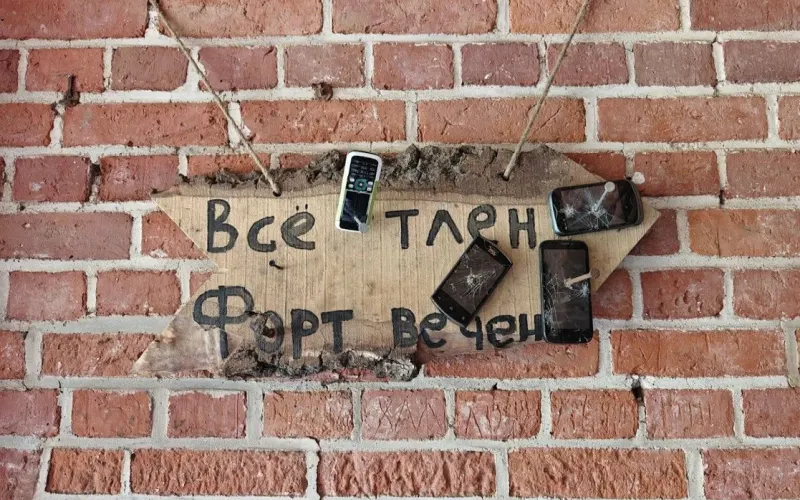 Всё тлен
Форт вечен